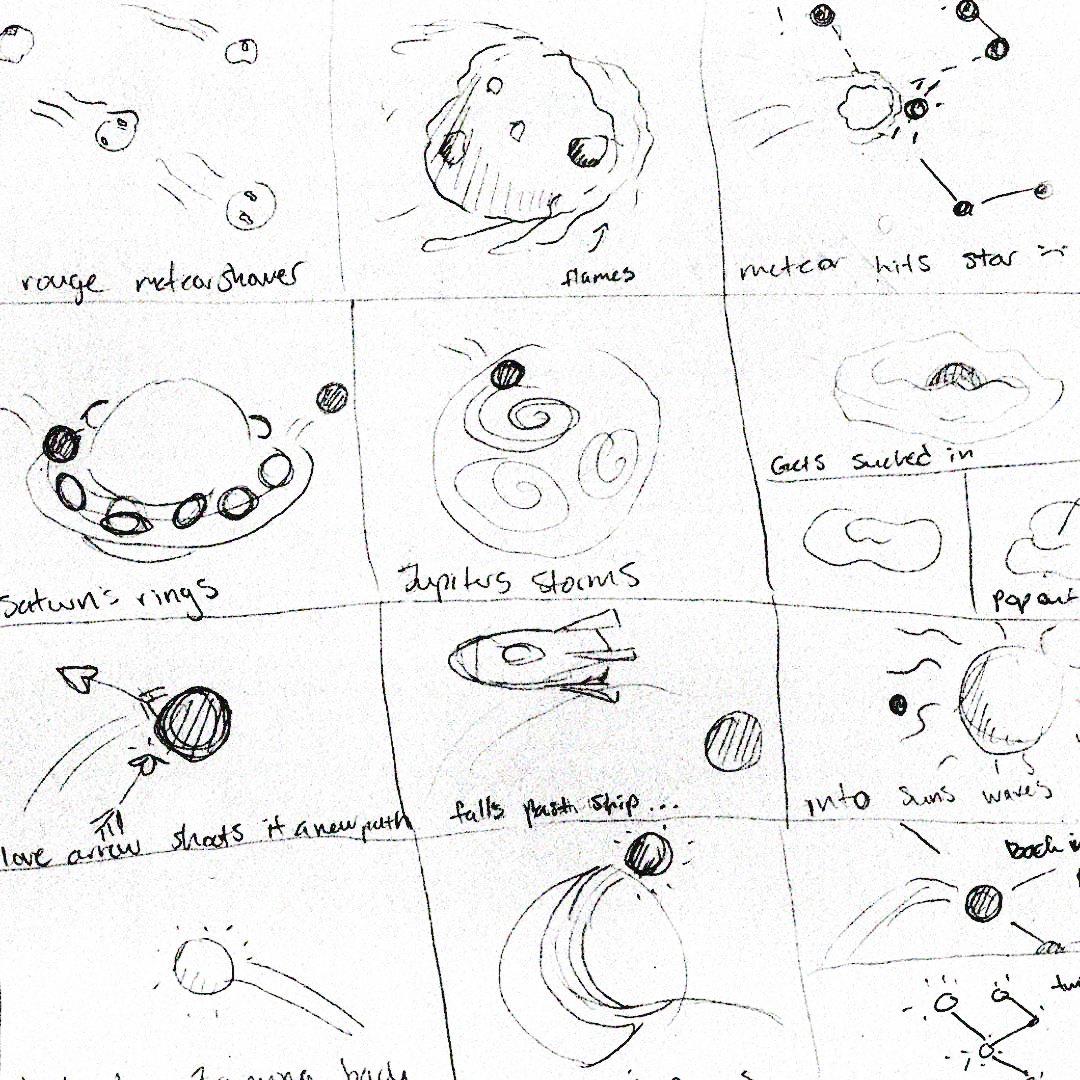 rouge meteorshower
flames
meteor hits star
Gets sucked in
Saturn's rings
Jupiters storms
Pop out
love arrow shoots it a new path
falls past ship...
into suns waves
Back in
back